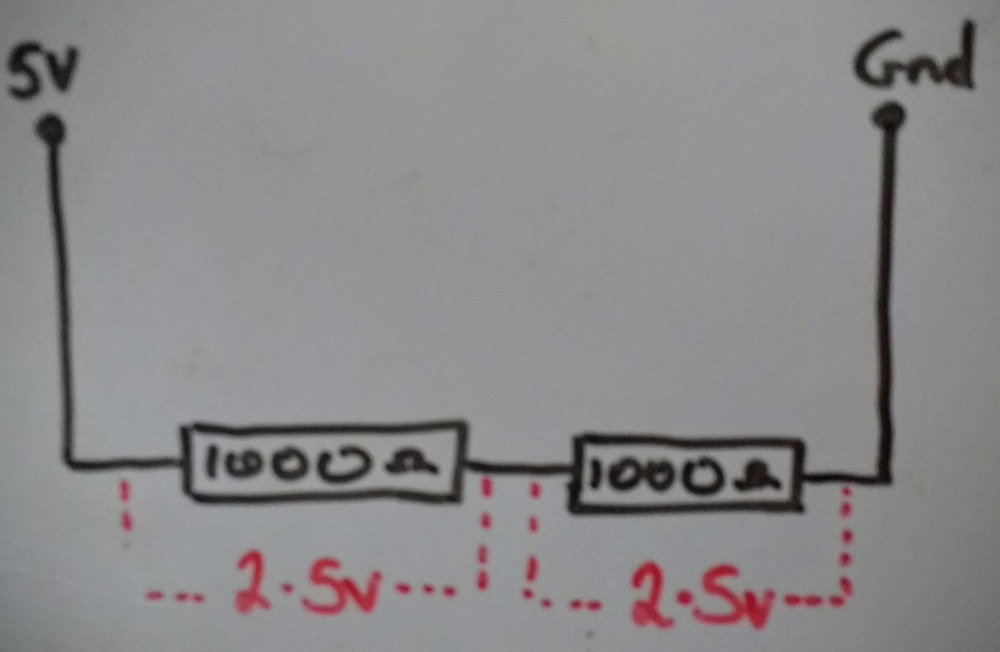 5V
Gnd
1000Ω
1000Ω
2.5v
2.5v